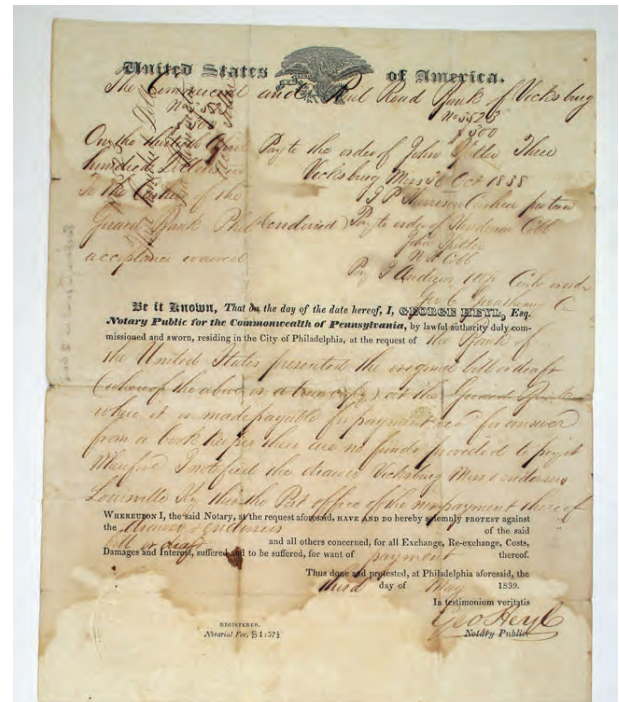 United States of America.
The Commercial and Rail Road Bank of Vicksburg
No 5523
$300
No 5523
$300
On the thirtieth April Pay to the order of John Spiller Three
hundred Dollars
Vicksburg Miss 30 Oct 1838
To the Cashier of the
Harrison Cashier
Girard Bank Phil (endorsed) Pay to order of Cobb
John Spiller
Cobb
acceptance waived
Pay Andrews
Be it Known, That on the day of the date hereof, I, GEORGE HEYL, Esq.
Notary Public for the Commonwealth of Pennsylvania, by lawful authority duly com-
missioned and sworn, residing in the City of Philadelphia, at the request of the Bank of
the United States presented the original bill or draft
(whereof the above is a true copy) at the Girard Bank
where it is made payable for payment for answer
from a book keeper there are no funds provided to pay it
Wherefore I notified the drawer Vicksburg Miss endorsers
Louisville Ky thro the Post office of the nonpayment thereof
WHEREUPON I, the said Notary, at the request aforesaid, HAVE AND DO hereby solemnly PROTEST against
the drawer & endorsers of the said
bill or draft and all others concerned, for all Exchange, Re-exchange, Costs,
Damages and Interest, suffered and to be suffered, for want of payment thereof.
Thus done and protested, at Philadelphia aforesaid, the
third day of May 1839.
In testimonium veritatis
Geo Heyl
Notary Public
REGISTERED.
Notarial Fee, $1 57½